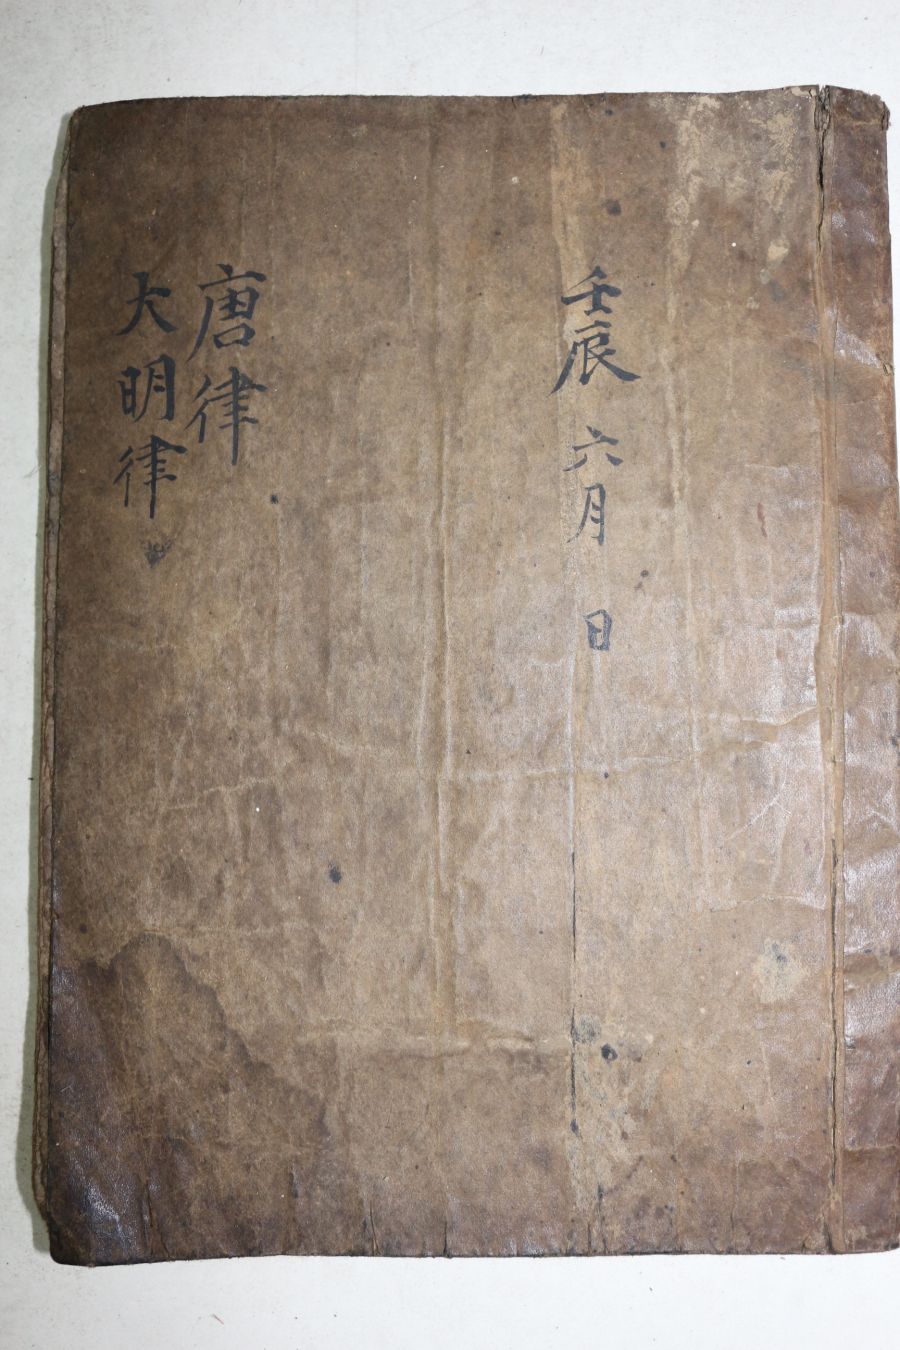 壬辰 六月 日
唐律
大明律